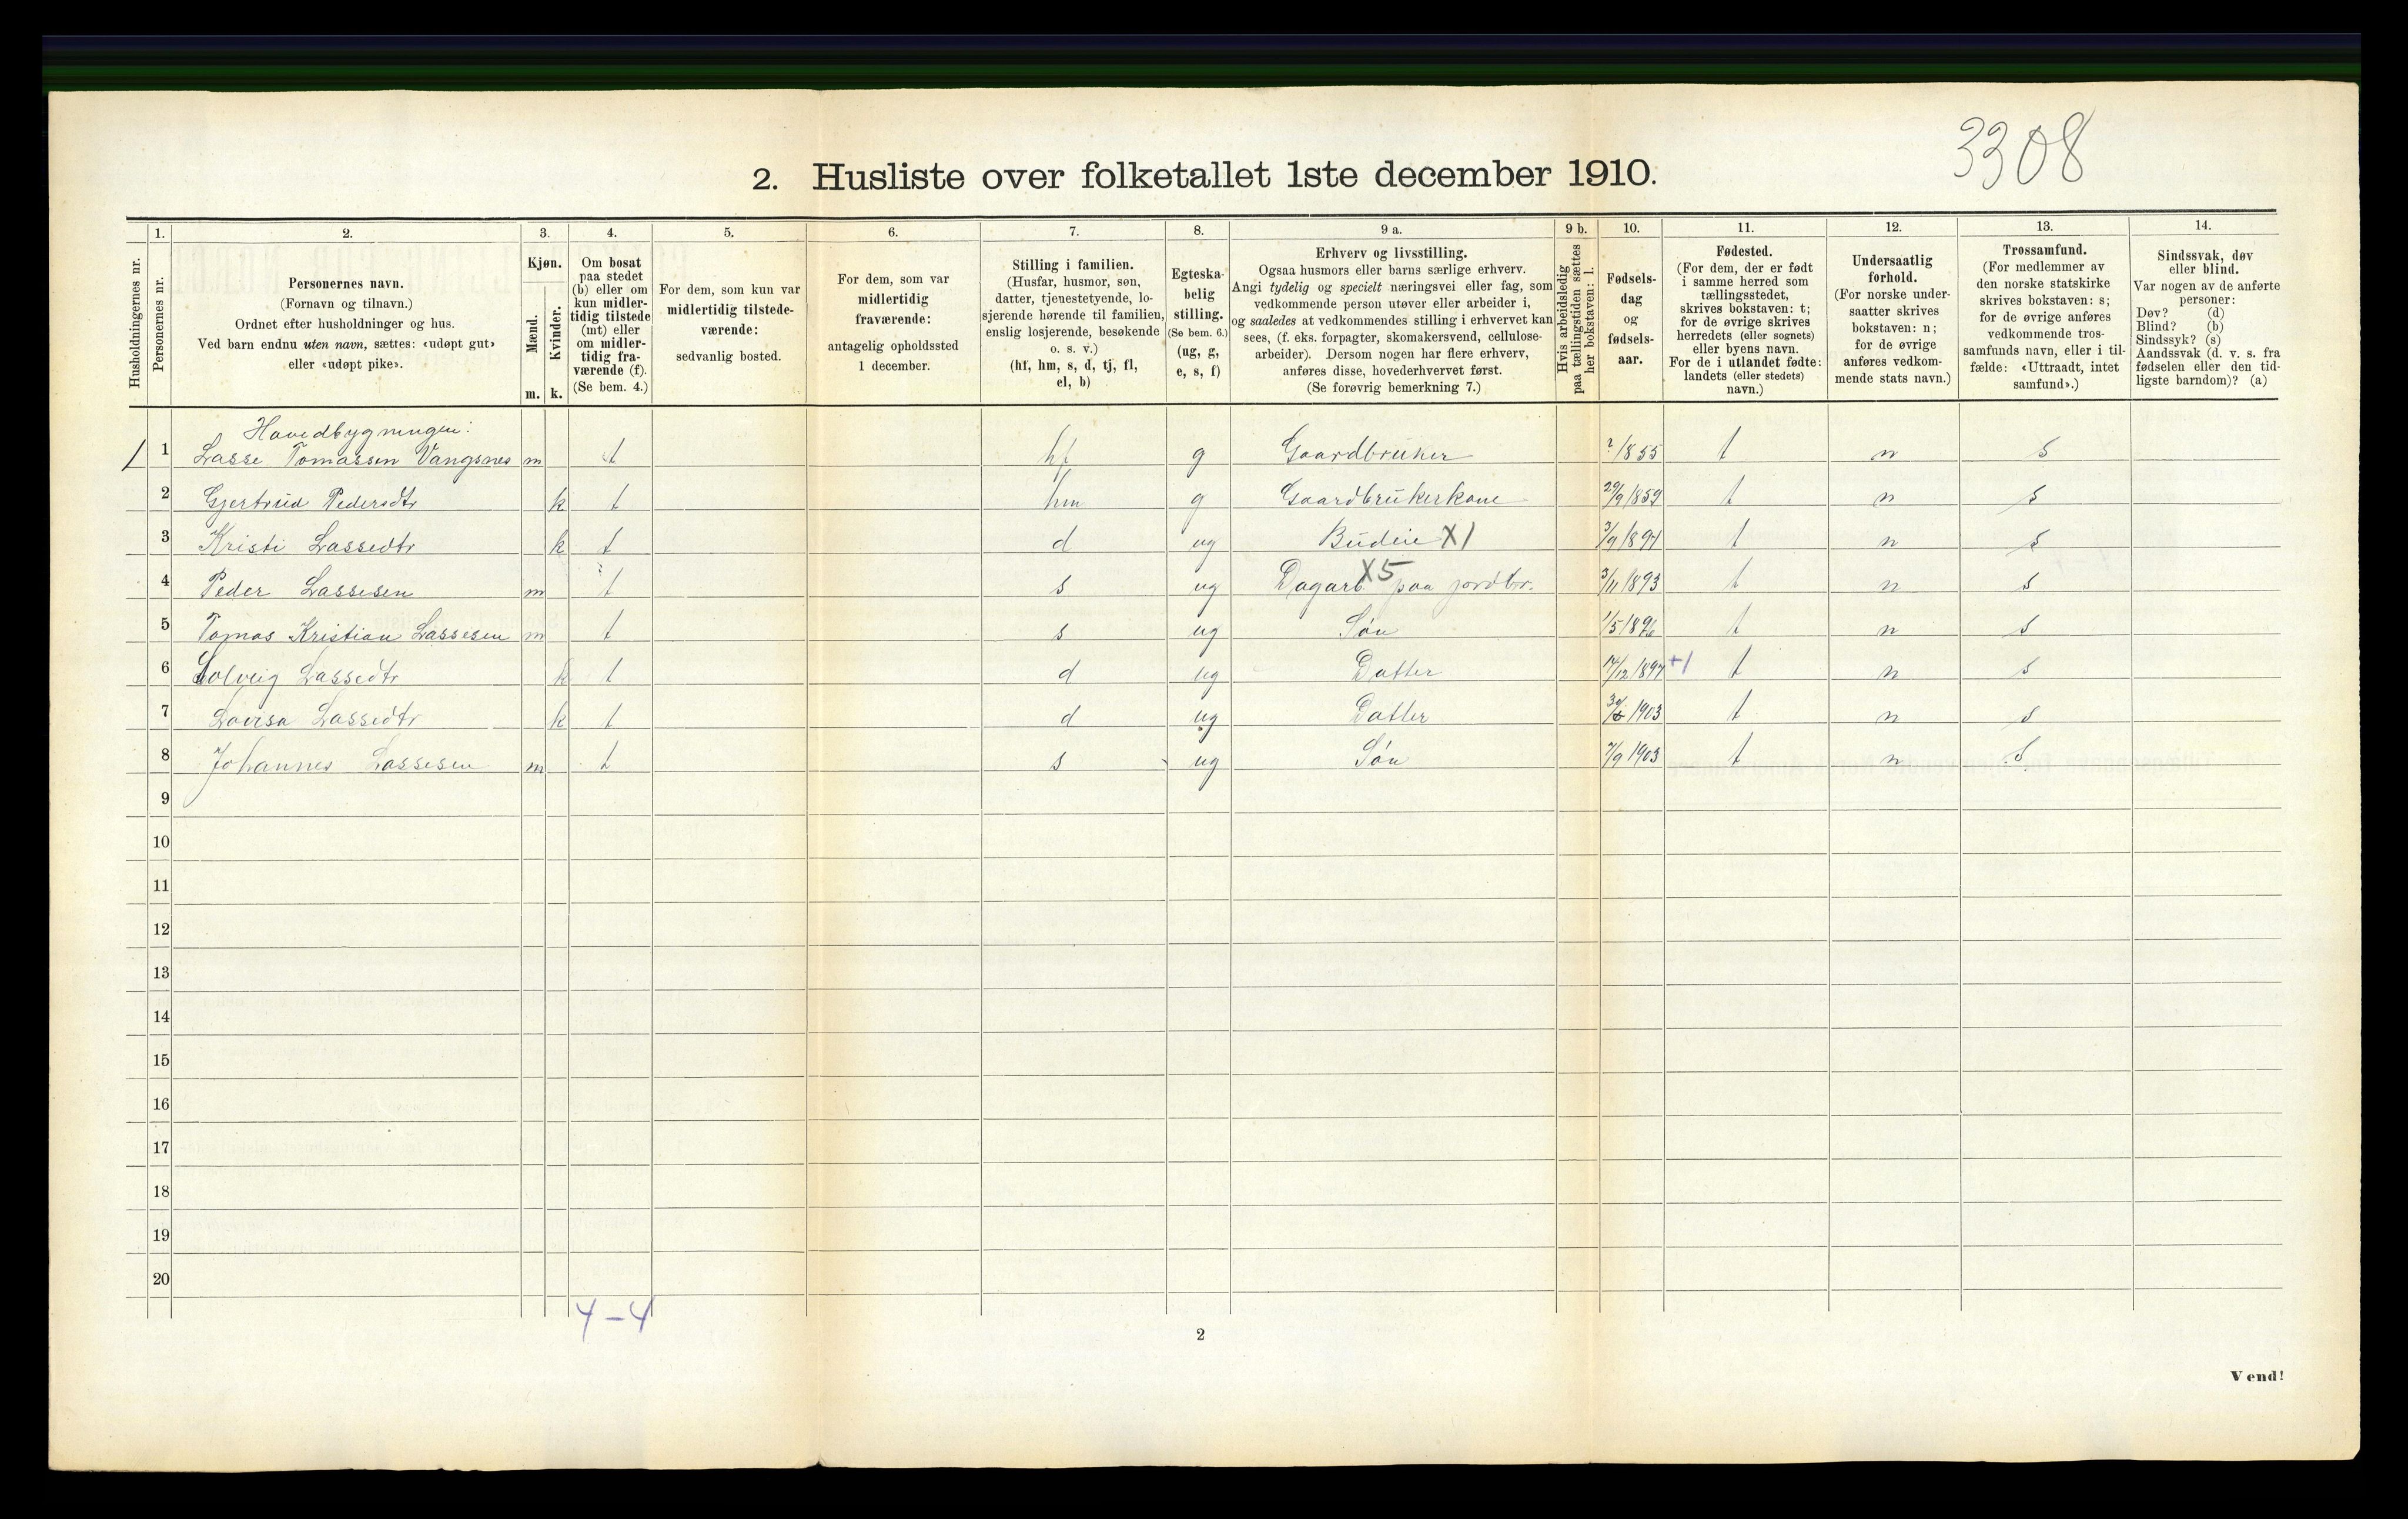 3308
2. Husliste over folketallet 1ste december 1910.
Husholdningernes nr.
1.
Personernes nr.
2.
Personernes navn.
(Fornavn og tilnavn.)
Ordnet efter husholdninger og hus.
Ved barn endnu uten navn, sættes: «udøpt gut»
eller «udøpt pike».
3.
Kjøn.
Mænd.
Kvinder.
m. k.
4.
Om bosat
paa stedet
(b) eller om
kun midler-
tidig tilstede
(mt) eller
om midler-
tidig fra-
værende (f).
(Se bem. 4.)
5.
For dem, som kun var
midlertidig tilstede-
værende:
sedvanlig bosted.
6.
For dem, som var
midlertidig
fraværende:
antagelig opholdssted
1 december.
7.
Stilling i familien.
(Husfar, husmor, søn,
datter, tjenestetyende, lo-
sjerende hørende til familien,
enslig losjerende, besøkende
o. s. v.)
(hf, hm, s, d, tj, fl,
el, b)
8.
Egteska-
belig
stilling.
(Se bem. 6.)
(ug, g,
e, s, f)
9 a.
Erhverv og livsstilling.
Ogsaa husmors eller barns særlige erhverv.
Angi tydelig og specielt næringsvei eller fag, som
vedkommende person utøver eller arbeider i,
og saaledes at vedkommendes stilling i erhvervet kan
sees, (f. eks. forpagter, skomakersvend, cellulose-
arbeider). Dersom nogen har flere erhverv,
anføres disse, hovederhvervet først.
(Se forøvrig bemerkning 7.)
9 b.
Hvis arbeidsledig
paa tællingstiden sættes
her bokstaven: l.
10.
Fødsels-
dag
og
fødsels-
aar.
11.
Fødested.
(For dem, der er født
i samme herred som
tællingsstedet,
skrives bokstaven: t;
for de øvrige skrives
herredets (eller sognets)
eller byens navn.
For de i utlandet fødte:
landets (eller stedets)
navn.)
12.
Undersaatlig
forhold.
(For norske under-
saatter skrives
bokstaven: n;
for de øvrige
anføres vedkom-
mende stats navn.)
13.
Trossamfund.
(For medlemmer av
den norske statskirke
skrives bokstaven: s;
for de øvrige anføres
vedkommende tros-
samfunds navn, eller i til-
fælde: «Uttraadt, intet
samfund».)
14.
Sindssvak, døv
eller blind.
Var nogen av de anførte
personer:
Døv? (d)
Blind? (b)
Sindssyk? (s)
Aandssvak (d. v. s. fra
fødselen eller den tid-
ligste barndom)? (a)
Hovedbygningen:
1 1 Lasse Tomassen Vangsnes m t hf g Gaardbruker ?/1855 t n s
2 Gjertrud Pedersdtr k t hm g Gaardbrukerkone 29/9 1859 t n s
3 Kristi Lassedtr k t d ug Budeie X1 t n s
4 Peder Lassesen m t s ug Dagarb. X5 paa jordbr. 3/11 1893 t n s
5 Tomas Kristian Lassesen m t s ug Søn 1/5 1896 t n s
6 Solveig Lassedtr k t d ug Datter +1 t n s
7 Lovisa Lassedtr k t d ug Datter 1903 t n s
8 Johannes Lassesen m t s ug Søn 7/9 1903 t n s
9
10
11
12
13
14
15
16
17
18
19
20
4-4
2
Vend!